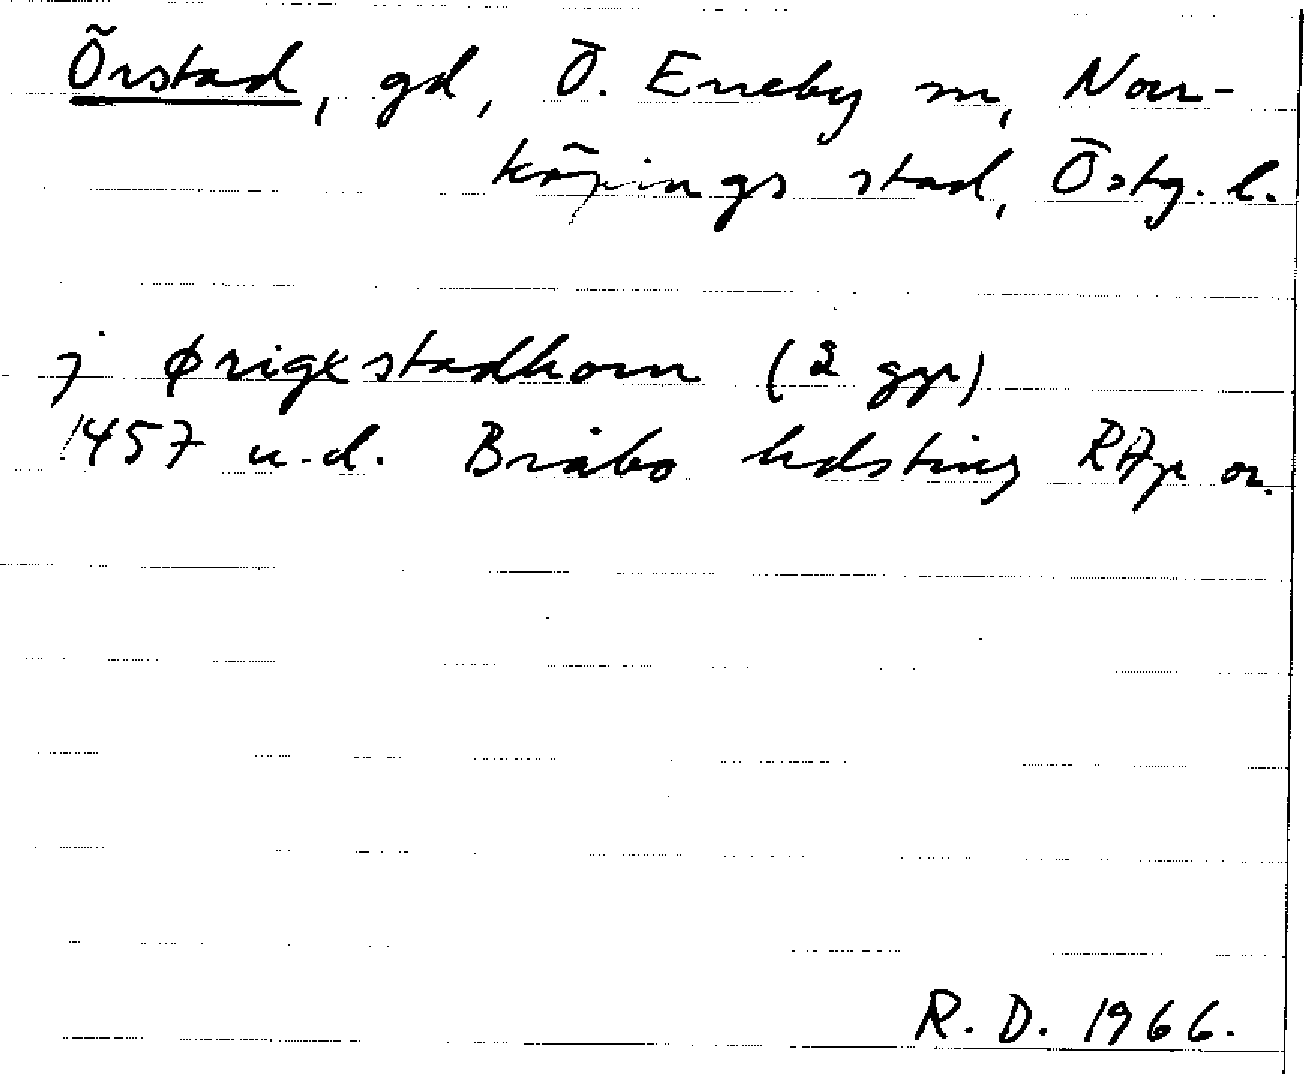 Örstad, gd, Ö. Eneby sn, Norr-
köpings stad, Östg. l.
j ørigxstadhom (2 ggr)
1457 u.d. Bråbo hdsting RAp or.
R. D. 1966.